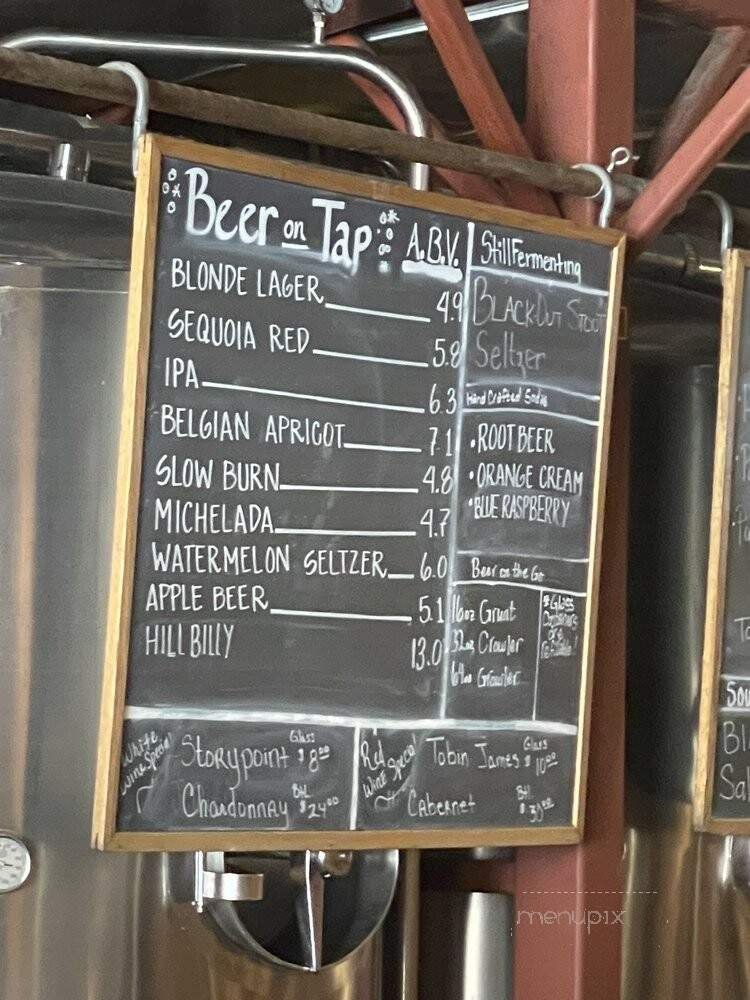 Beer on Tap A.B.V.
BLONDE LAGER 4.9
SEQUOIA RED 5.8
IPA 6.3
BELGIAN APRICOT 7.1
SLOW BURN 4.8
MICHELADA 4.7
WATERMELON SELTZER 6.0
APPLE BEER 5.1
HILLBILLY 13.0
Still Fermenting
BLACK-OUT STOUT
Seltzer
Hand Crafted Sodas
• ROOT BEER
• ORANGE CREAM
• BLUE RASPBERRY
Beer on the Go
16oz Grunt
32oz Crowler
64oz Growler
* Glass
Containers
are
White
Wine Special
Storypoint Glass $8.00
Chardonnay Btl $24.00
Red
Wine Special
Tobin James Glass $10.00
Cabernet Btl $30.00
Sou
Bl
Sal
menupix